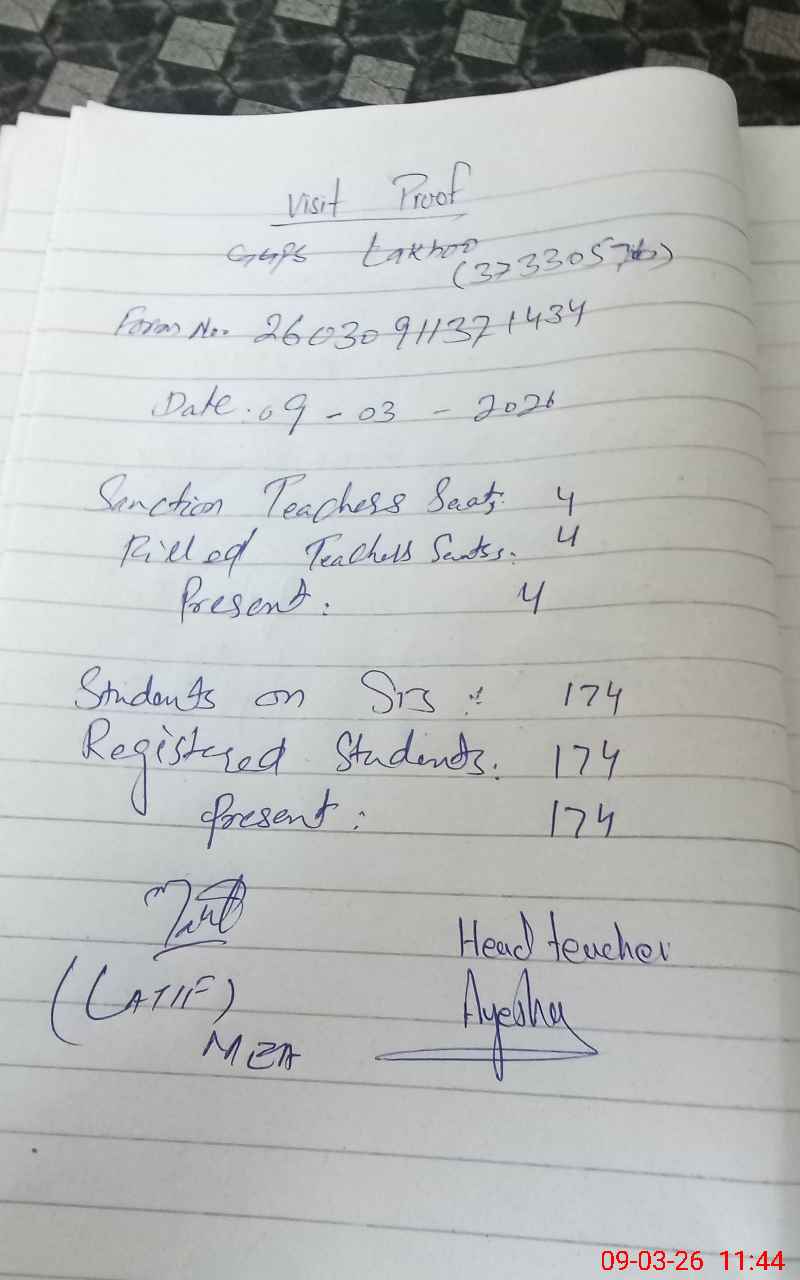 Visit Proof
GGPS Lakhoo
(37330576)
Form No. 26030911371434
Date: 09-03-2026
Sanction Teachers Seats: 4
Filled Teachers Seats: 4
Present: 4
Students on SIS: 174
Registered Students: 174
Present: 174
(LATIF)
MEA
Head teacher
Ayesha
09-03-26 11:44